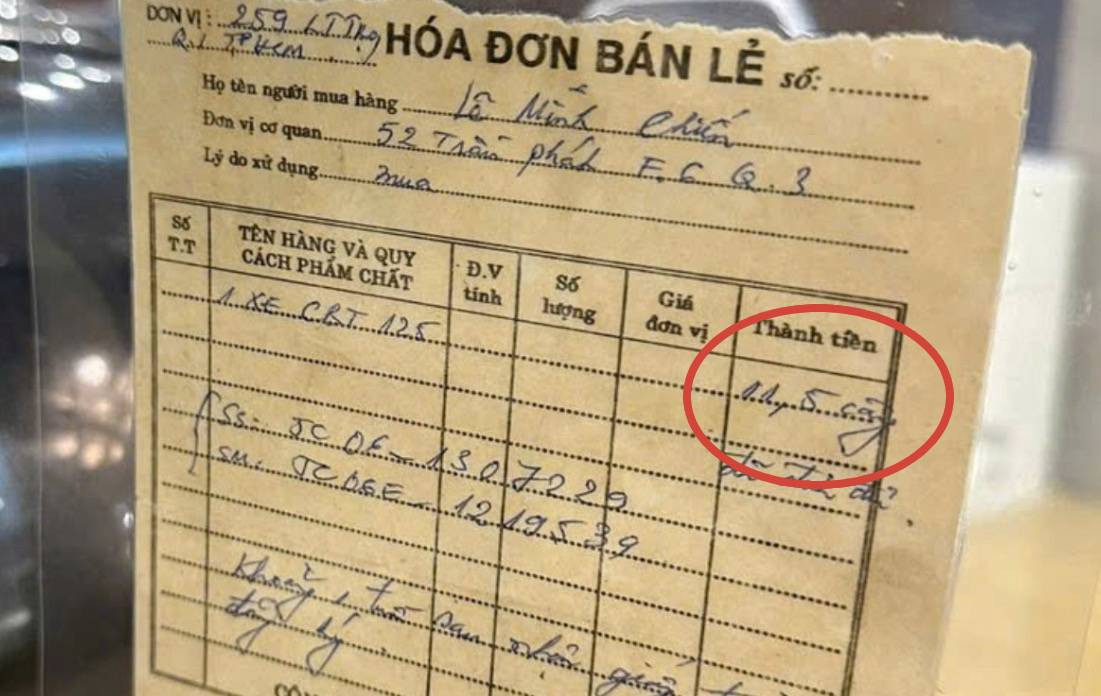 ĐƠN VỊ: 259 LTTrg
Q.1 TPHCM
HÓA ĐƠN BÁN LẺ Số:
Họ tên người mua hàng Lê Minh Chiến
Đơn vị cơ quan 52 Trần F.6 Q.3
Lý do xử dụng mua
Số T.T
TÊN HÀNG VÀ QUY CÁCH PHẨM CHẤT
Đ.V tính
Số lượng
Giá đơn vị
Thành tiền
1 XE CBT 125
11,5 cây
SS: JCDE - 1307229
SM: JCDGE - 1219539
sau khi
đăng ký